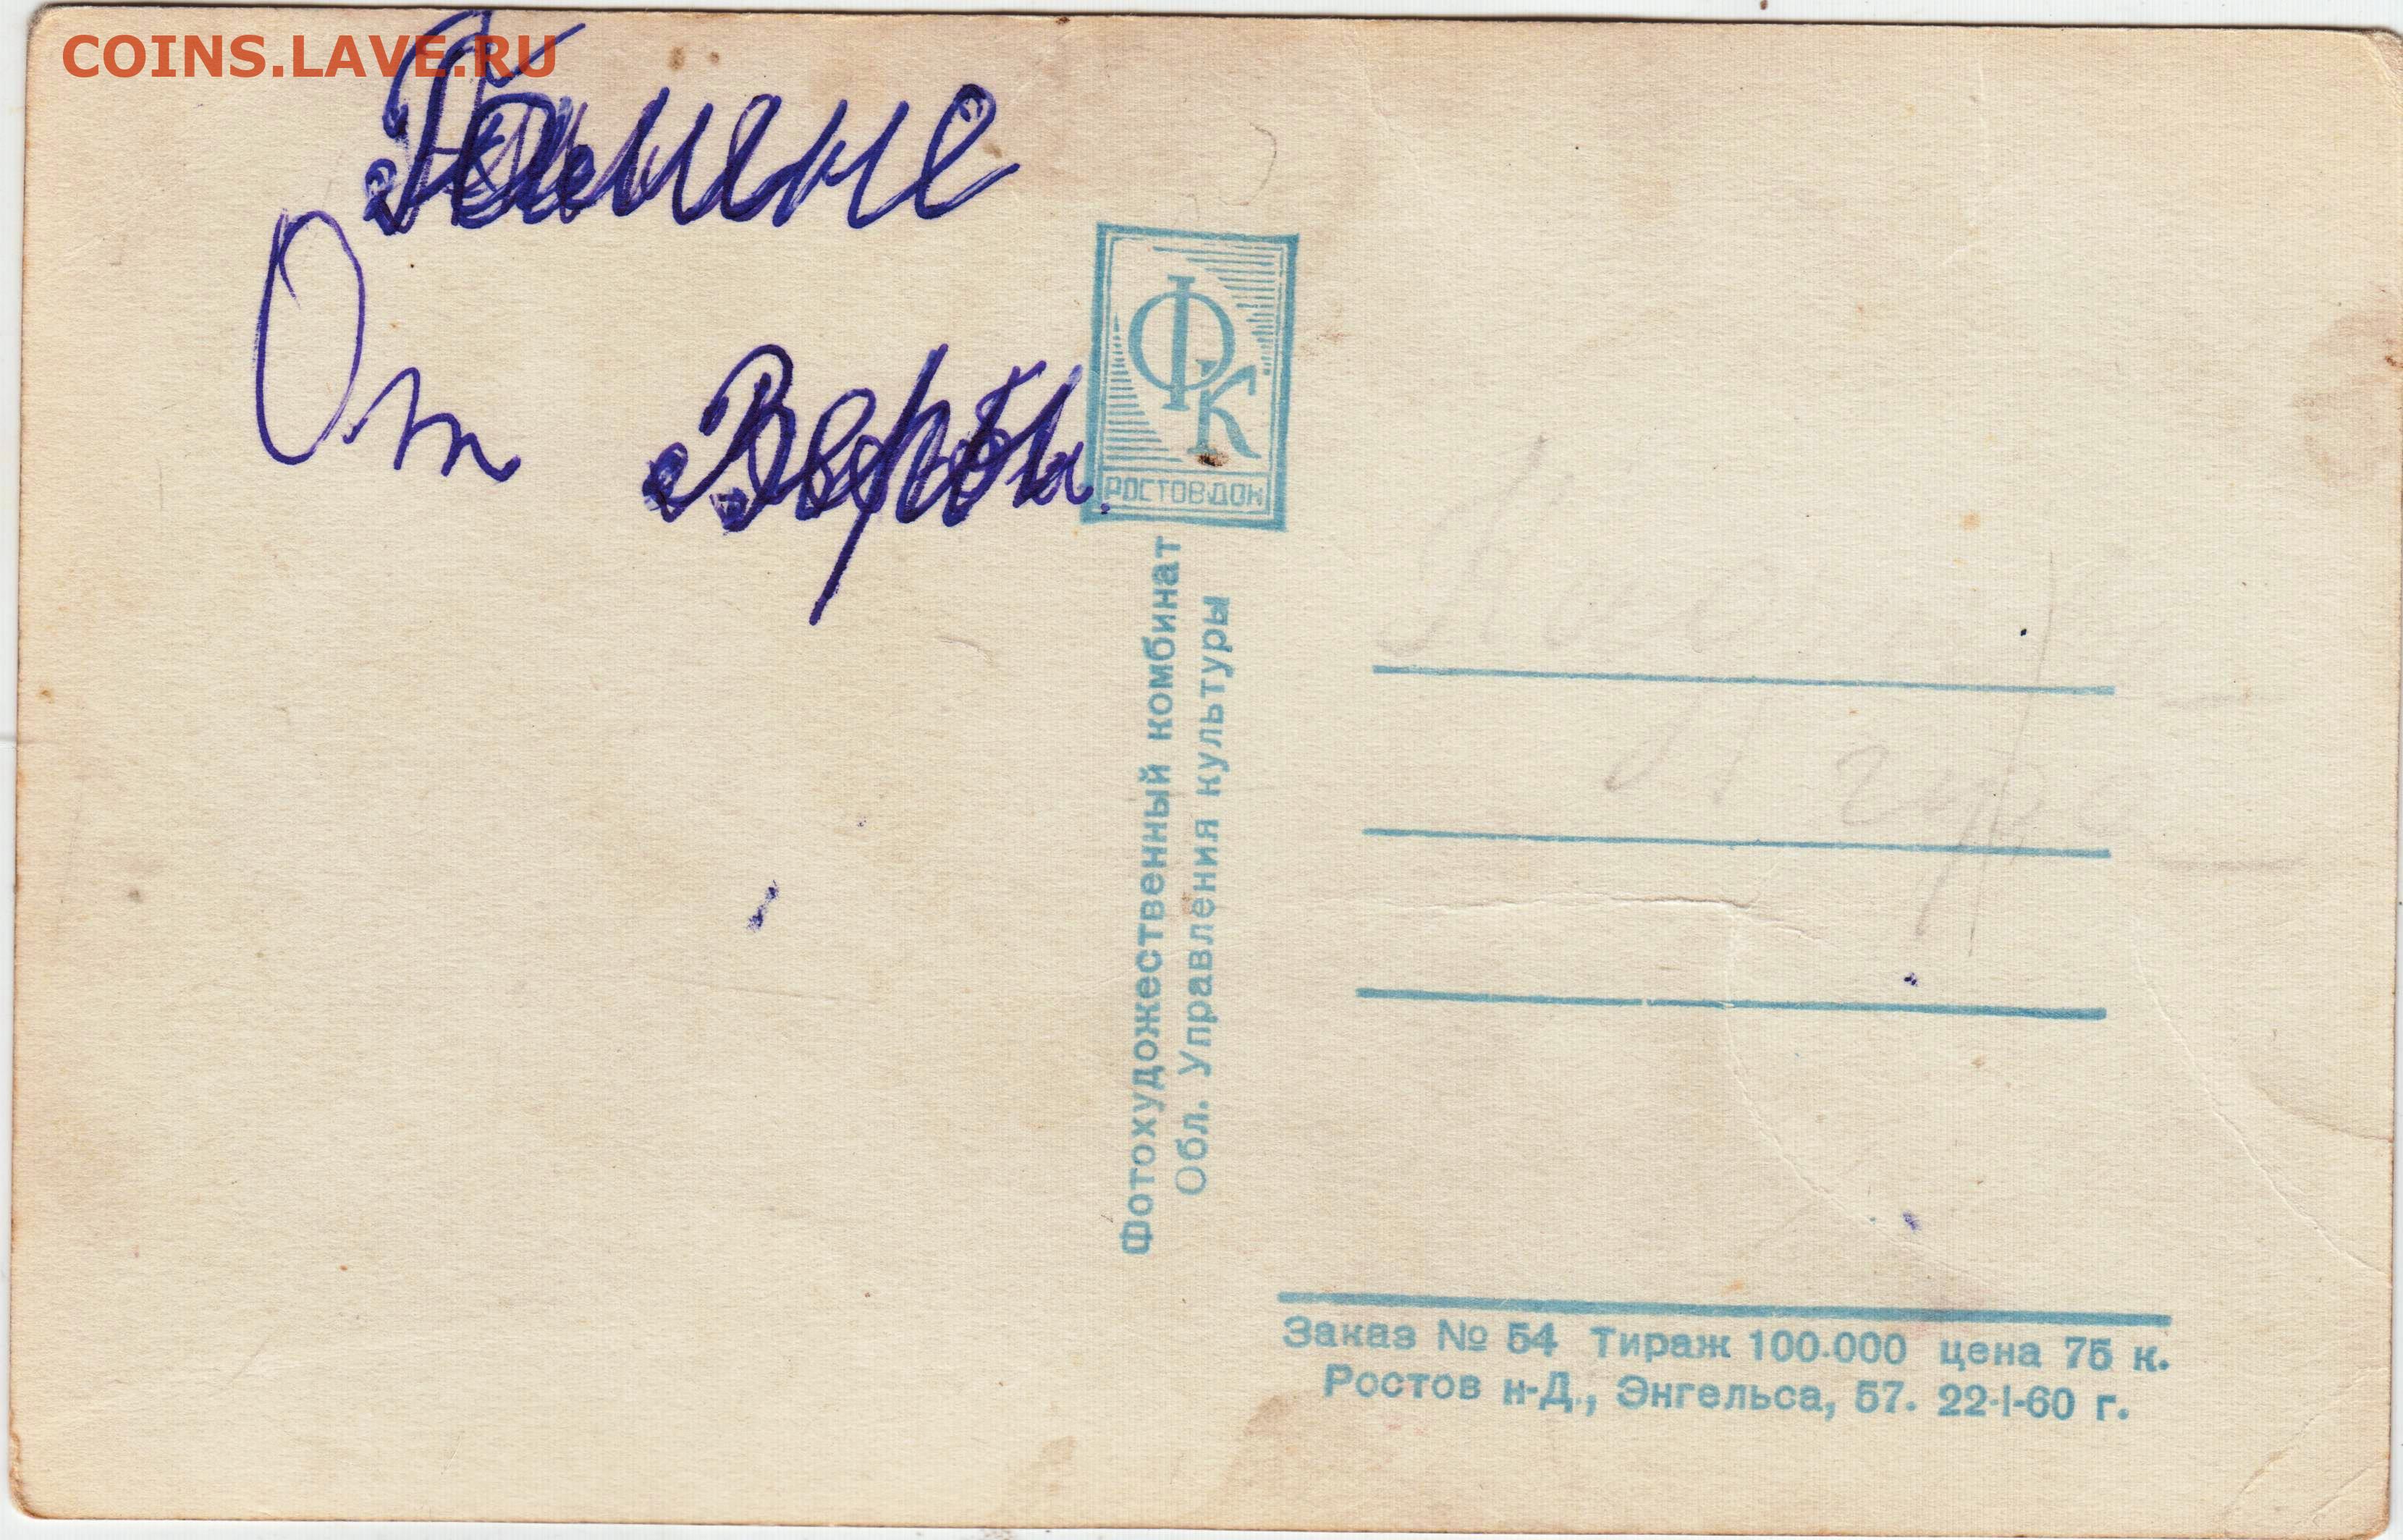 COINS.LAVE.RU
От Веры.
ФК
РОСТОВ-ДОН
Фотохудожественный комбинат
Обл. Управления культуры
Заказ № 54 Тираж 100.000 цена 75 к.
Ростов н-Д., Энгельса, 57. 22-I-60 г.